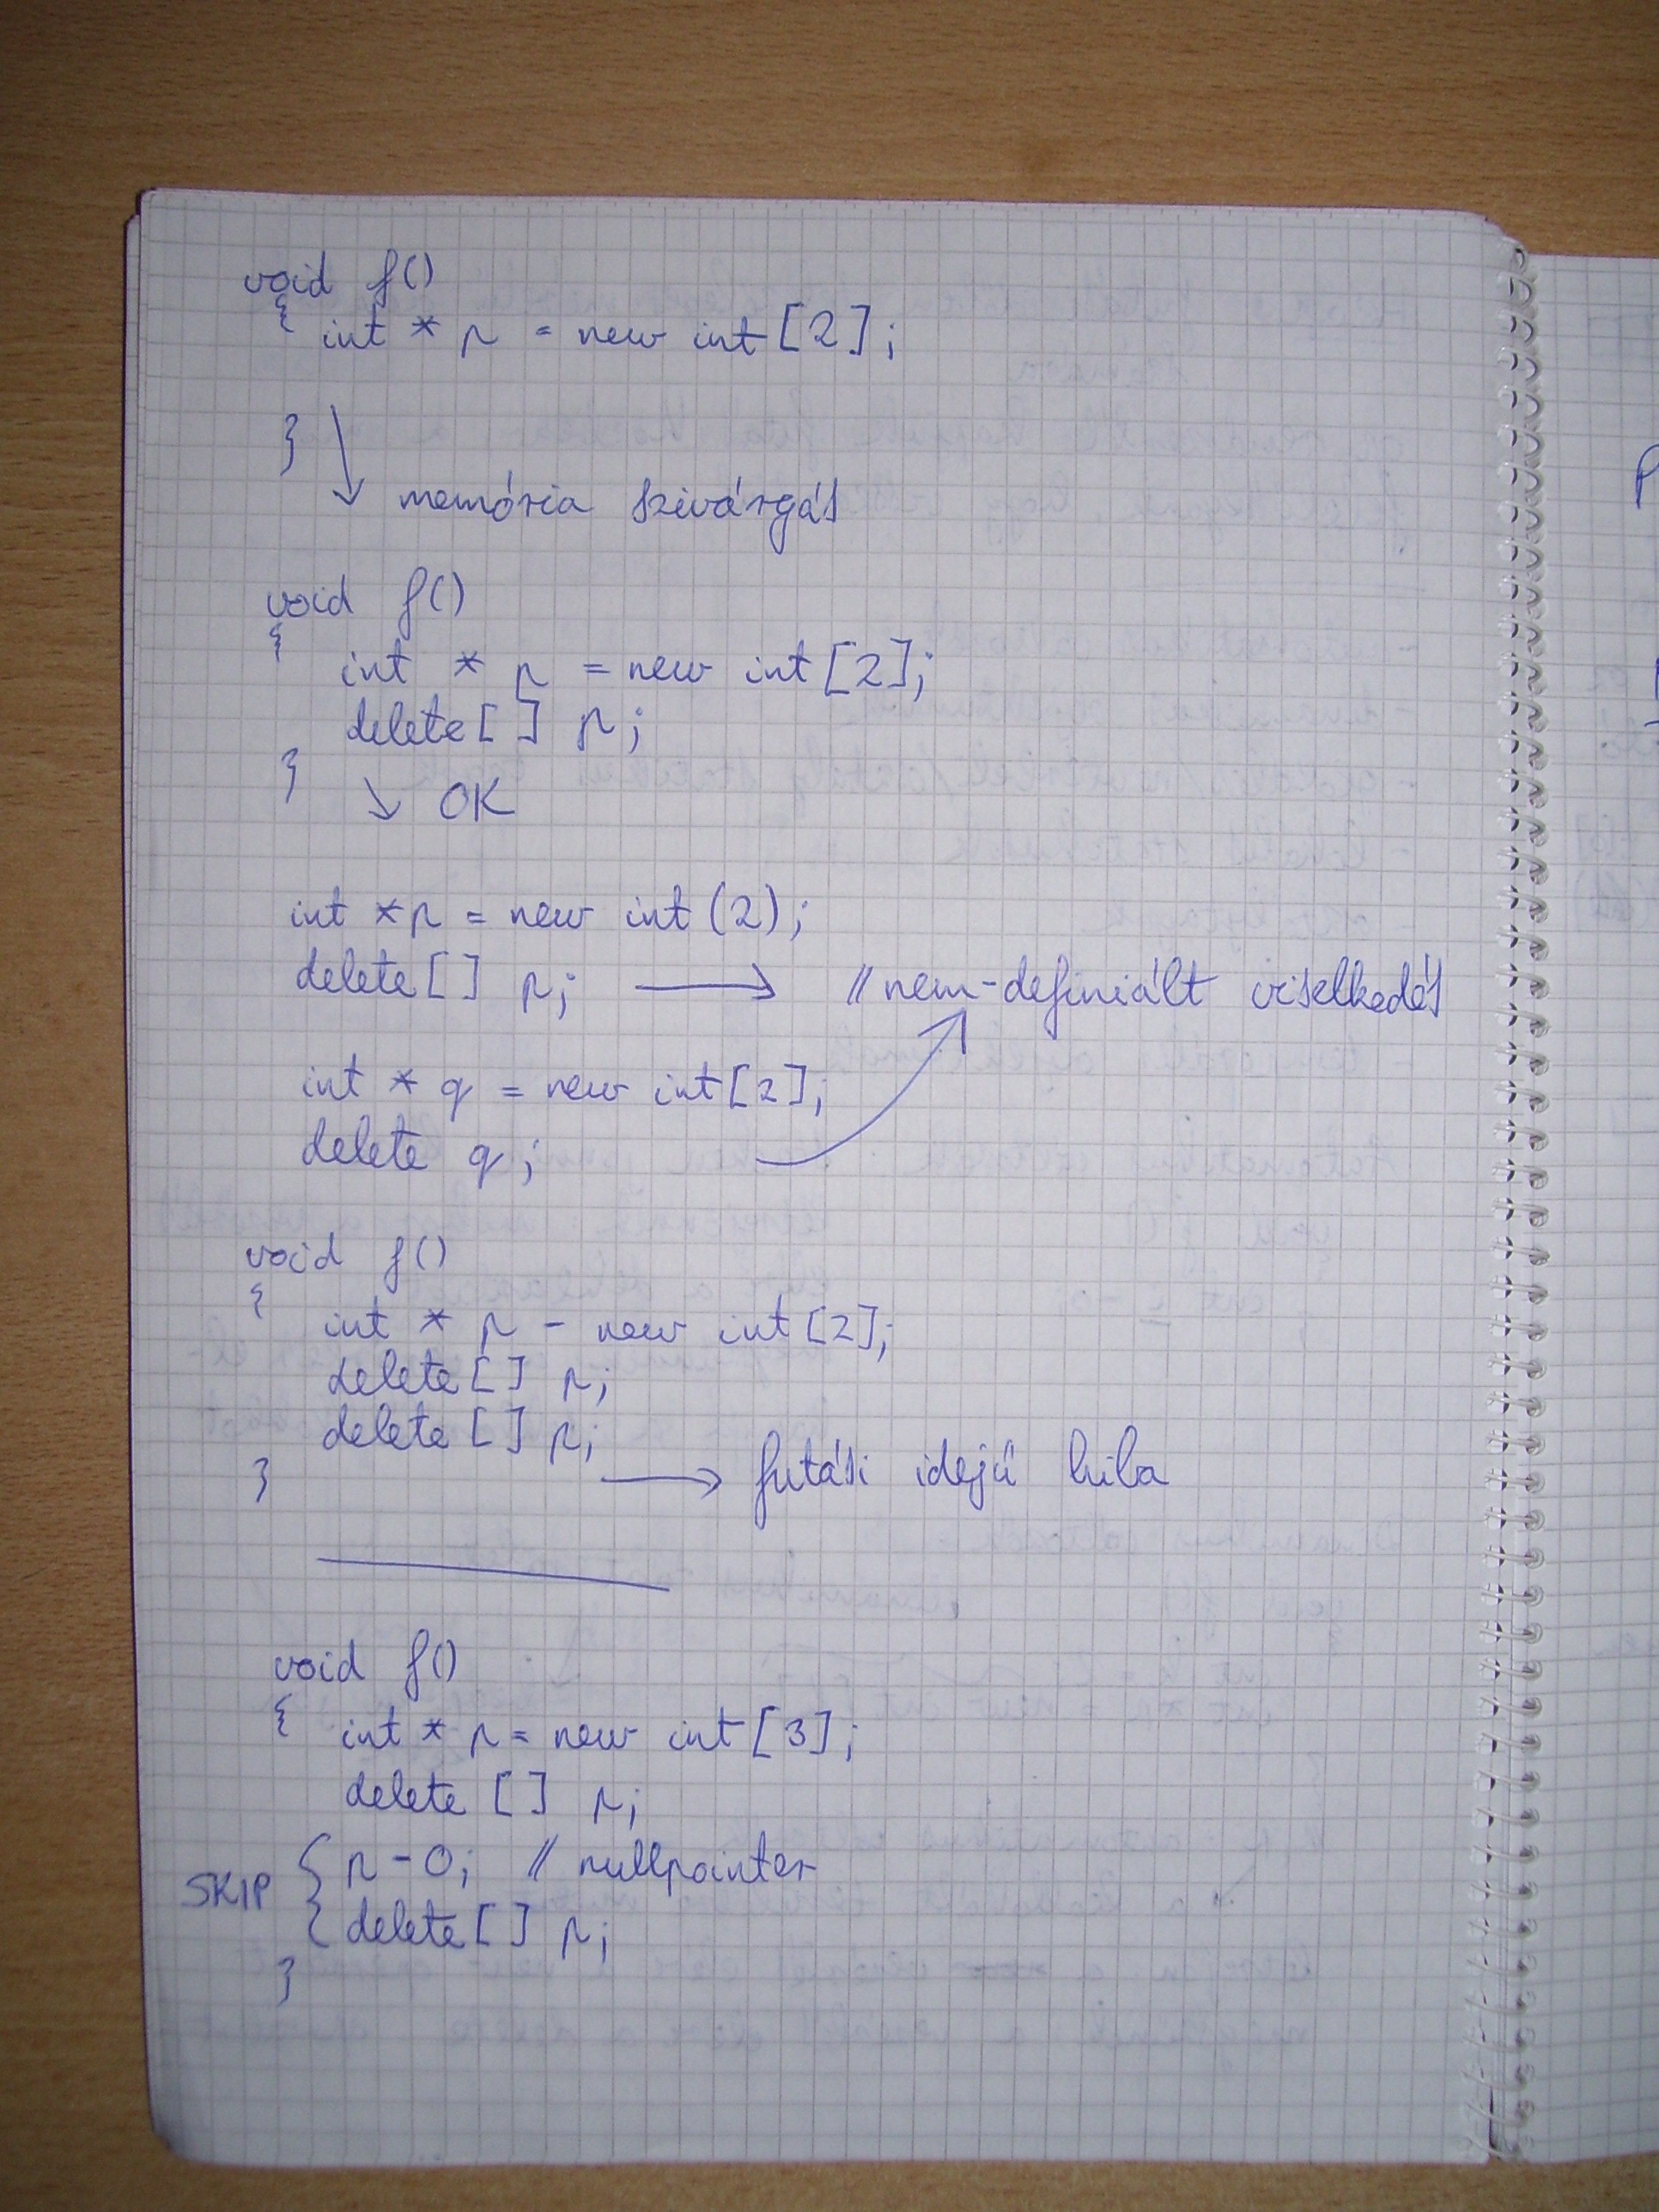 void f()
{ int * p = new int [2];
}
memória szivárgás
void f()
{
int * p = new int [2];
delete [ ] p;
}
OK
int *p = new int (2);
delete [ ] p; // nem-definiált viselkedés
int * q = new int [2];
delete q;
void f()
{
int * p - new int [2];
delete [ ] p;
delete [ ] p;
} futási idejű hiba
void f()
{ int * p = new int [3];
delete [ ] p;
SKIP { p - 0; // nullpointer
delete [ ] p;
}